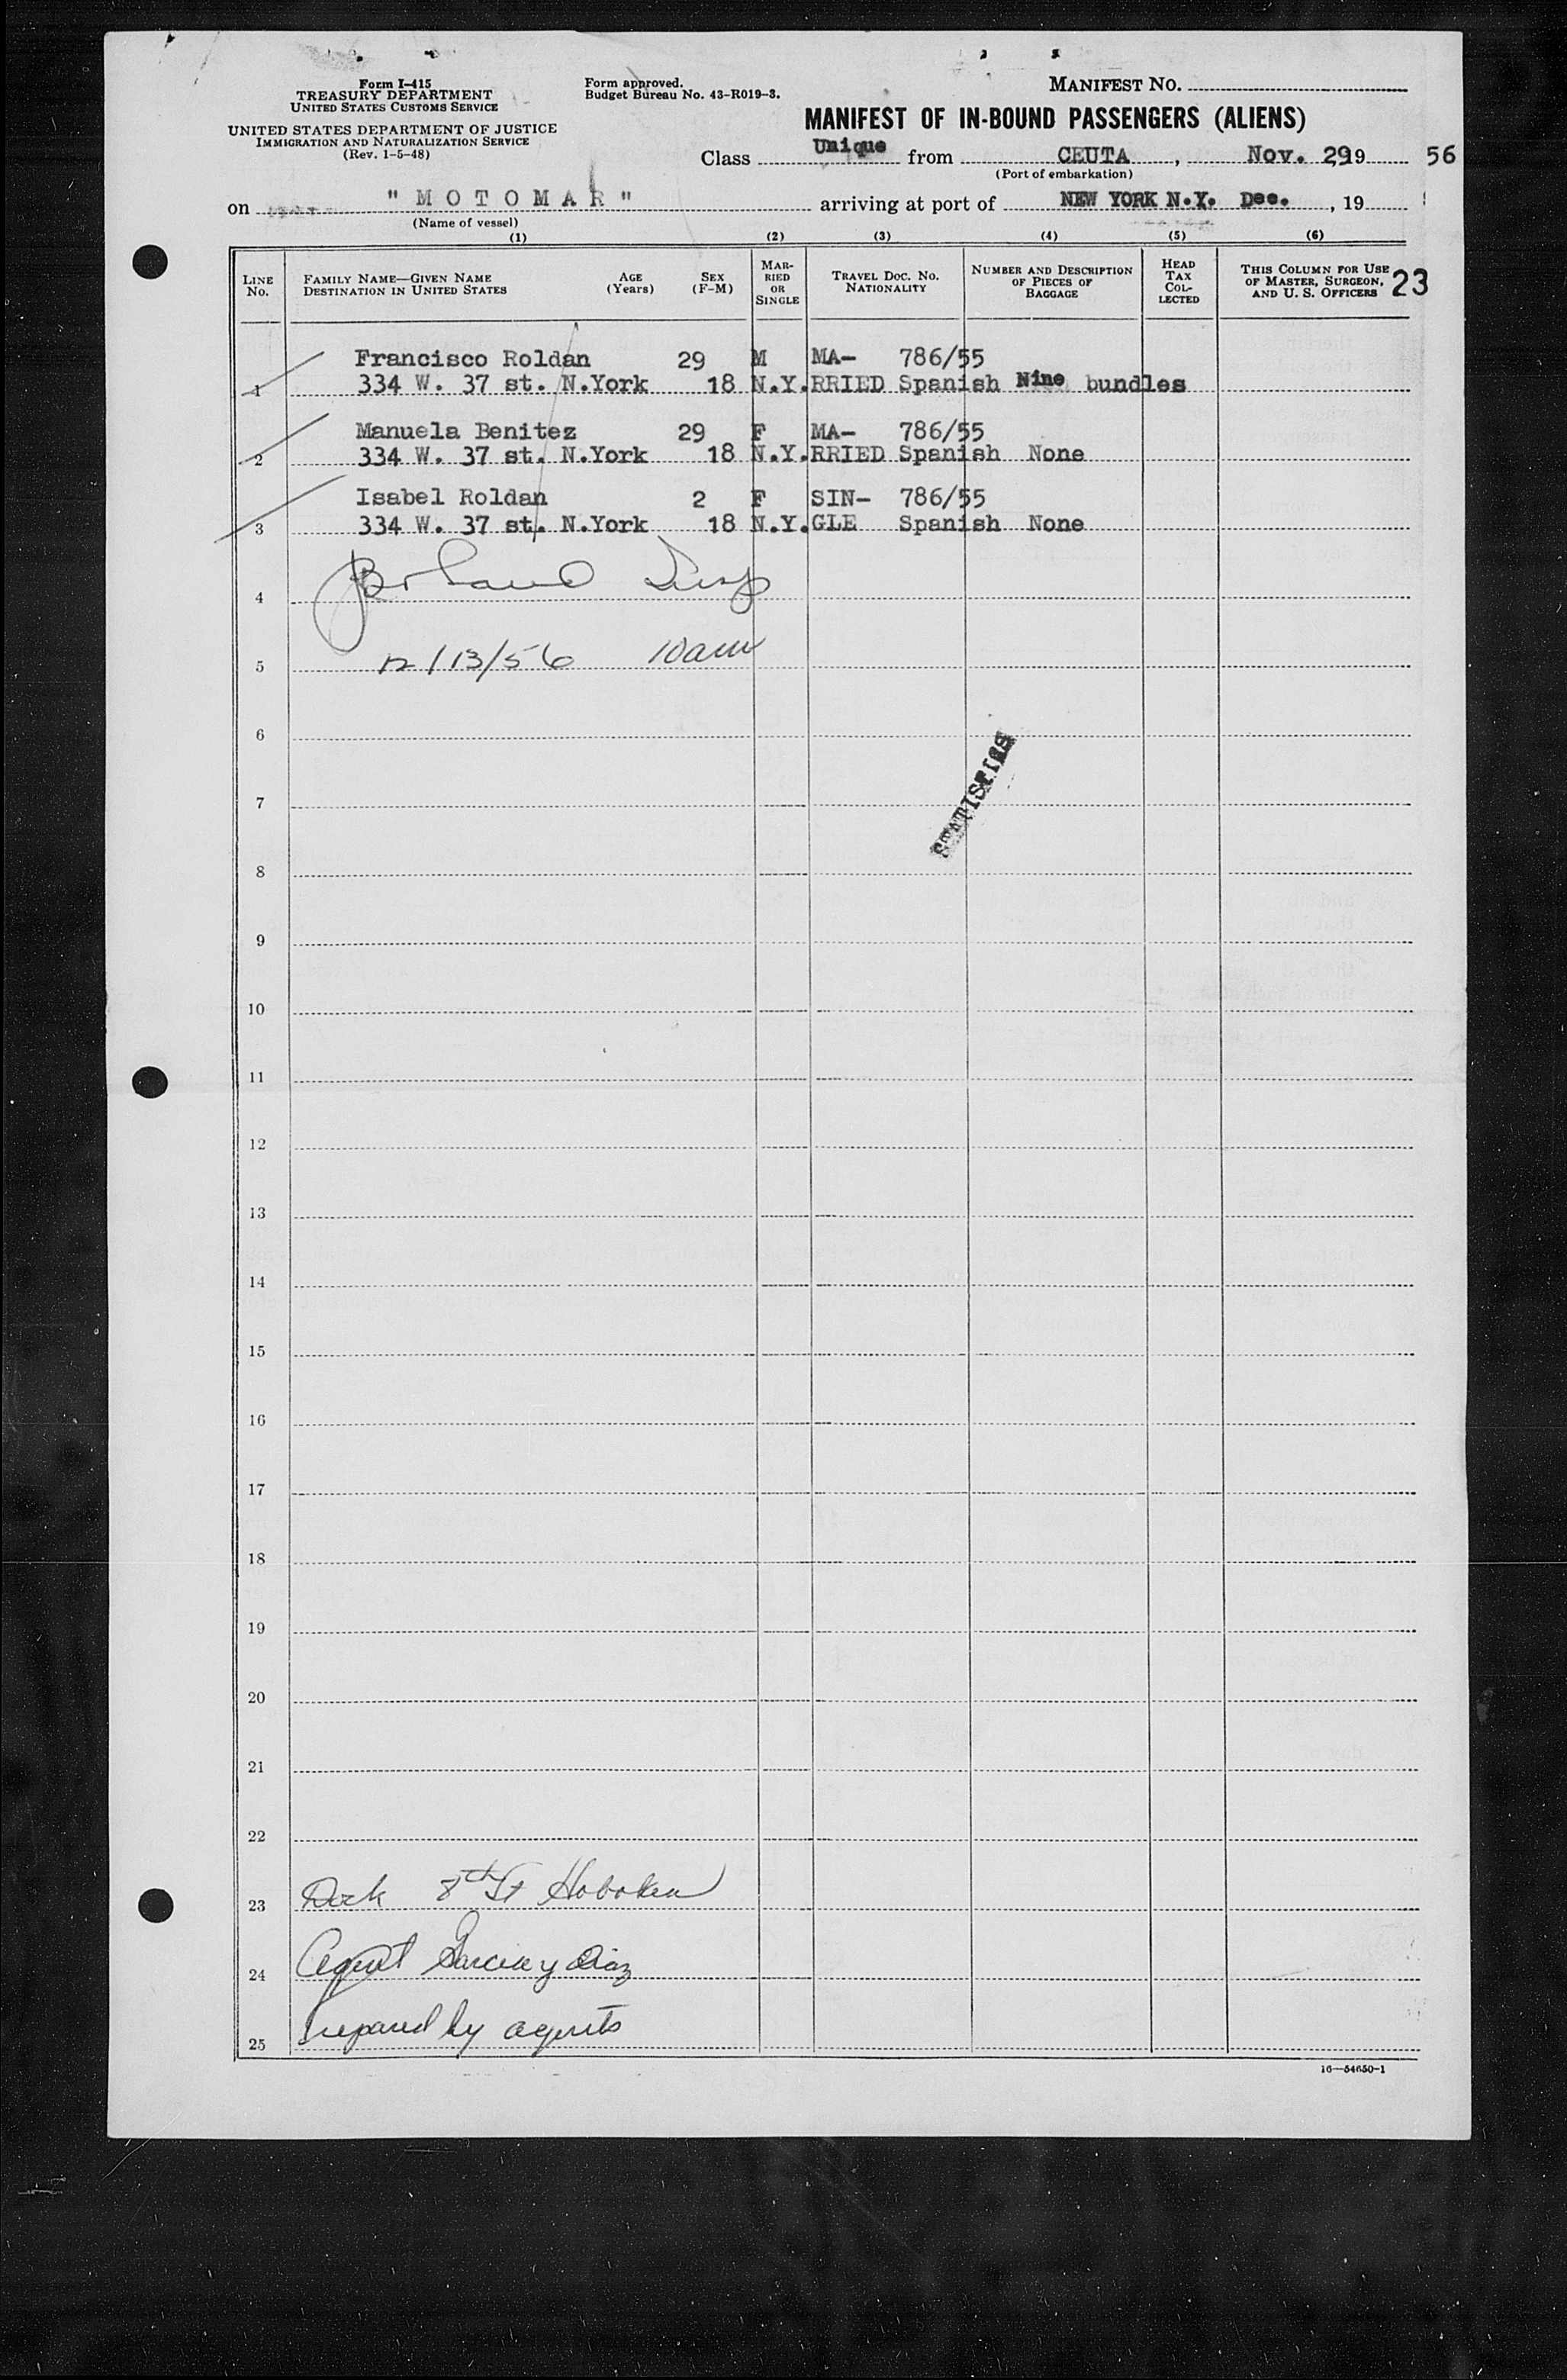 Form I-415
TREASURY DEPARTMENT
UNITED STATES CUSTOMS SERVICE
UNITED STATES DEPARTMENT OF JUSTICE
IMMIGRATION AND NATURALIZATION SERVICE
(Rev. 1-5-48)
Form approved.
Budget Bureau No. 43-R019-3.
MANIFEST NO.
MANIFEST OF IN-BOUND PASSENGERS (ALIENS)
Class Unique from CEUTA, Nov. 29, 19 56
(Port of embarkation)
on "MOTOMAR" arriving at port of NEW YORK N.Y. Dec., 19
(Name of vessel)
(1) (2) (3) (4) (5) (6)
LINE No. FAMILY NAME—GIVEN NAME DESTINATION IN UNITED STATES AGE (Years) SEX (F-M) MARRIED OR SINGLE TRAVEL DOC. NO. NATIONALITY NUMBER AND DESCRIPTION OF PIECES OF BAGGAGE HEAD TAX COLLECTED THIS COLUMN FOR USE OF MASTER, SURGEON, AND U. S. OFFICERS 23
Francisco Roldan 29 M MA- 786/55
1 334 W. 37 st. N.York 18 N.Y. RRIED Spanish Nine bundles
Manuela Benitez 29 F MA- 786/55
2 334 W. 37 st. N.York 18 N.Y. RRIED Spanish None
Isabel Roldan 2 F SIN- 786/55
3 334 W. 37 st. N.York 18 N.Y. GLE Spanish None
4
5 12/13/56 10am
6
STATISTICS
7
8
9
10
11
12
13
14
15
16
17
18
19
20
21
22
23 Dock 8th St Hoboken
24 Agent Garcia y Diaz
25 Prepared by agents
16—54650-1